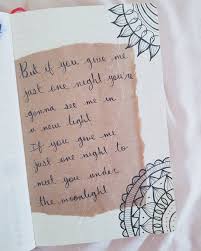 But if you give me
just one night, you're
gonna see me in
a new light
If you give me
just one night to
meet you under
the moonlight